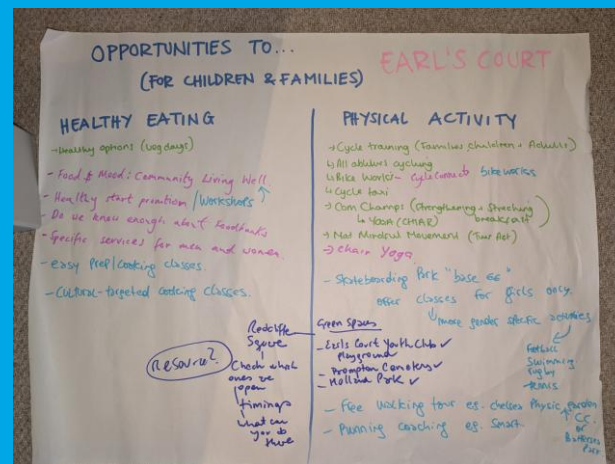 OPPORTUNITIES TO...
(FOR CHILDREN & FAMILIES)
EARL'S COURT
HEALTHY EATING
→ Healthy options (veg days)
- Food & Mood: Community Living Well
- Healthy start promotion /Workshops
- Do we know enough about Foodbanks
- Specific services for men and women.
- easy prep/cooking classes.
- Cultural-targeted cooking classes.
Resource?
Redcliffe
Square
Check what
ones are
open
timings
what can
you do
there
PHYSICAL ACTIVITY
→ Cycle training (Families children + Adults)
↳ All abilities cycling
↳ Bike Works - cycle bikeworks
↳ Cycle taxi
→ Com Champs (Strengthening + Stretching
breakfast)
↳ YOGA (CHAIR)
→ Mindful Movement
→ Chair Yoga
- Skateboarding Park "base 66"
offer classes for girls only.
↓ more gender specific activities
Football
Swimming
rugby
tennis
Green Spaces
- Earls Court Youth Club ✓
playground
- Brompton Cemetery ✓
- Holland Park ✓
- Free walking tour eg. chelsea Physic garden
↑ CC.
or
Battersea
Park
- Running coaching eg. Smart.